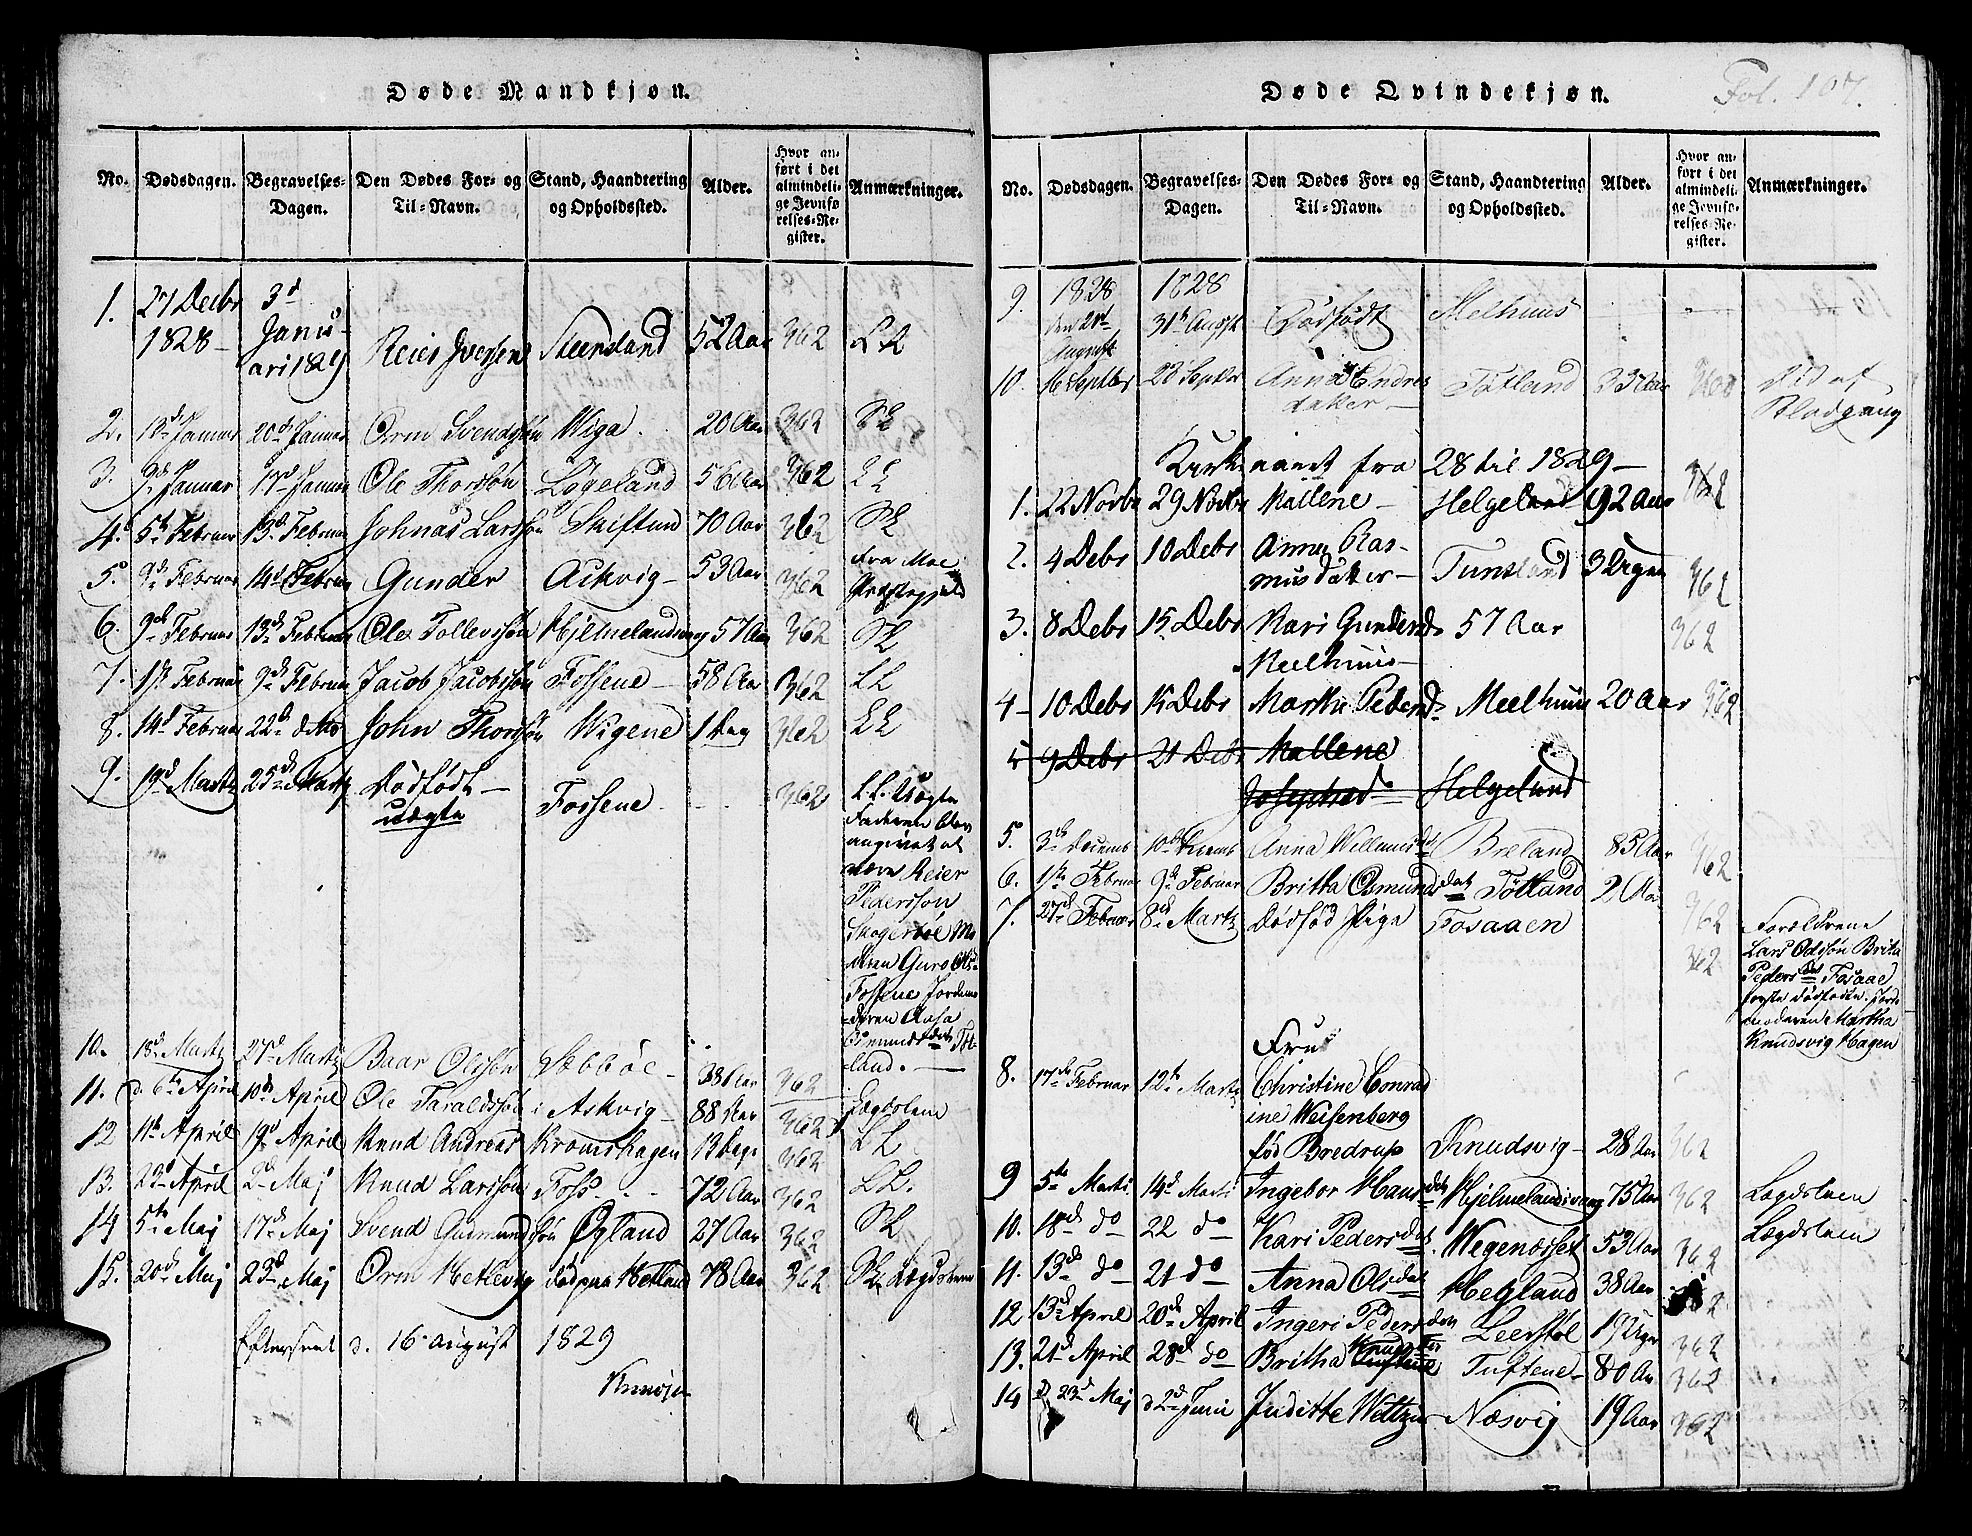 Døde Mandkjøn.
No. Dødsdagen. Begravelses-Dagen. Den Dødes For- og Til-Navn. Stand, Haandtering og Opholdssted. Alder. Hvor anført i det almindelige Jevnførelses-Register. Anmærkninger.
1. 27 Decbr 1828 – 3d Januari 1829 Reier Iversen Steensland 52 Aar 362 LL
2. 13d Januar 20d Januar Orm Svendsøn Wiga 20 Aar 362 SL
3. 9d Januar 17d Januar Ole Thorsøn Løgeland 56 Aar 362 LL
4. 5th Februar 13d Februar Johnas Larssøn Skiftun 70 Aar 362 SL
5. 9d Februar 14d Februar Gunder Askvig – 53 Aar 362 Fra Moe Præstegjeld
6. 9de Februar 13d Februar Ole Tollevsøn Hjelmelandsvog 57 Aar 362 SL
7. 1ste Februar 9de Februar Jacob Jacobsøn Fossene – 58 Aar 362 LL
8. 14d Februar 22de dito John Thorssøn Wigene 1 Dag 362 LL
9. 19d Martz 25de Martz Dødfødt – uægte Fossene – 362 LL. Uægte
Faderen blev
angivet at
være Reier
Pederssøn
Skogerbøe Mo
deren Guro Ols-
Fossene Jordemo
deren Aasa
Osmundsdat Tøt-
land. –
10. 18d Martz 27d Martz Baar Olssøn Sebbøe – 38 Aar 362
11. d. 6te April 10de April Ole Taraldssøn i Askvig – 88 Aar 362 Lægdslem
12 11te April 19d April Knud Andreas Kromshagen 13 Dage 362 LL
13. 23d April 2d Maj Knud Larssøn Foss 72 Aar 362 LL.
14 5te Maj 17d Maj Svend Gumundsøn Øgland 27 Aar 362 SL
15. 20de Maj 23d Maj Orm Hetlevig død paa Hetland 78 Aar 362 SL. Lægdslem
Efterseet d. 16 august 1829
Døde Qvindekjøn. Fol. 107.
No. Dødsdagen. Begravelses-Dagen. Den Dødes For- og Til-Navn. Stand, Haandtering og Opholdssted. Alder. Hvor anført i det almindelige Jevnførelses-Register. Anmærkninger.
9. 1828 den 21d August 1828 31te August Dødfødt Melhuus
10. 16 Septbr 28 Septbr Anna Endresdatter – Tøtland 33 Aar 360 Død af Blodgang
Kirkeaaret fra 28 til 1829 –
1. 22 Novbr 29 Novbr Mallene – Helgeland 92 Aar 362
2. 4 Debr 10 Debr Anne Rasmusdatter – Tunsland 3 Uger 362
3. 8 Debr 15 Debr Kari Gundersd. Meelhuus – 57 Aar 362
4 – 10 Debr 15 Debr Marthe Pedersd. Meelhuus 20 Aar 362
5 9 Debr 21 Debr Mallene Josephsd. Helgeland
5. 3de Decemb 10de Decemb Anna Willumsdat Breland 85 Aar 362
6. 1ste Februar 9de Februar Britta Osmundsdat Tøtland 2 Aar 362
7. 27de Februar 8de Martz Dødfød Pige Fosaaen 362 Forældrene
Lars Olssøn Brita
Pedersdat Fosaae
første dødfødte. Jorde
moderen Martha
Knudsvig Hagen
8. 17de Februar 12te Martz Frue Christine Conradine Weisenberg fød Bredrup Knudsvig – 28 Aar 362
9 5te Marti 14d Marti Ingebor Hansdat Hjelmelandsvaag 75 Aar 362 Lægdslem
10. 18de do 22 do Kari Pedersdat. Wegenæsset 53 Aar 362 Lægdslem
11. 13de do 21 do Anna Olsdat Hegland 38 Aar 362
12 13d April 20de April Ingeri Pedersdat Leerstøl 19 Uger 362
13. 21d April 28de do Britha Knudsdtr Tuftene – 80 Aar 362
14 d 23d Maj d 2d Juni Juditte Wiltzen Næsvig 19 Aar 362